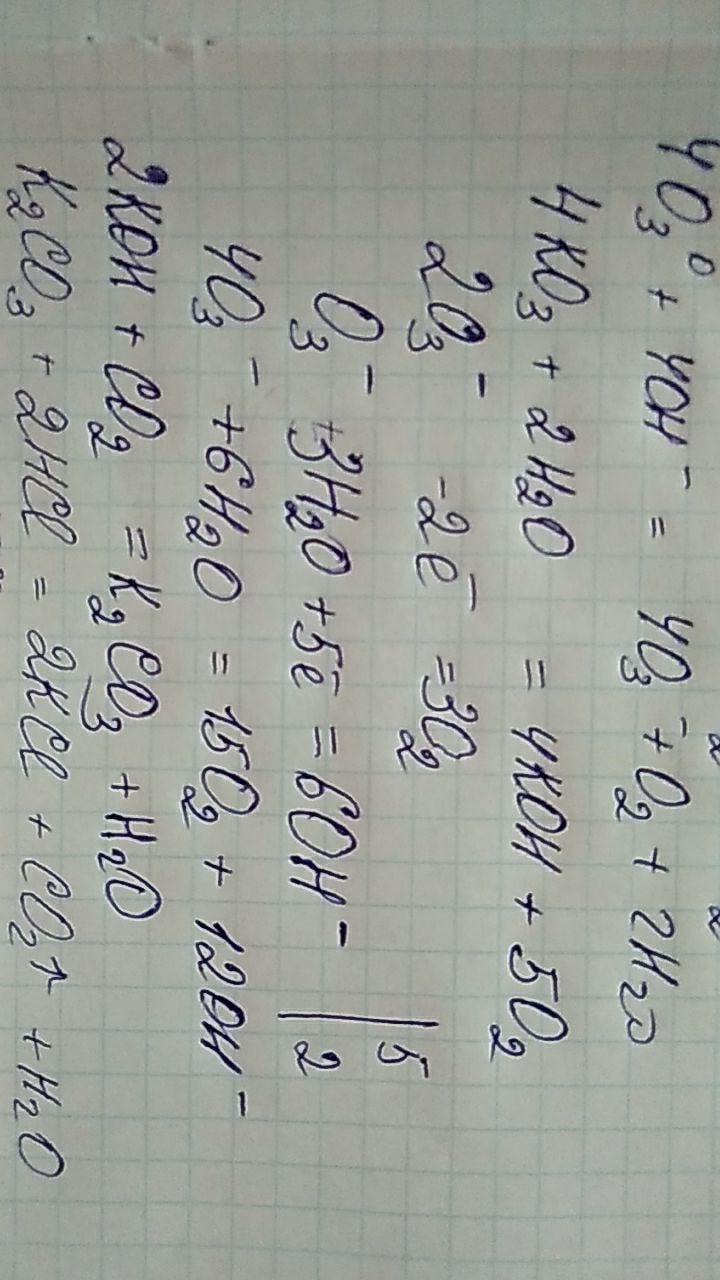 4O₃⁰ + 4OH⁻ = 4O₃⁻ + O₂ + 2H₂O
4KO₃ + 2H₂O = 4KOH + 5O₂
2O₃⁻ -2e⁻ = 3O₂ | 5
O₃⁻ + 3H₂O + 5e⁻ = 6OH⁻ | 2
4O₃⁻ + 6H₂O = 15O₂ + 12OH⁻
2KOH + CO₂ = K₂CO₃ + H₂O
K₂CO₃ + 2HCl = 2KCl + CO₂↑ + H₂O